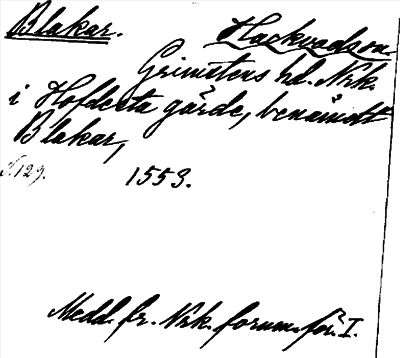 Blakar. Hackvads sn.
Grimstens hd. Nrk.
i Hofdesta gärde, benämdt
Blakar,
S. 129. 1553.
Medd. fr. Nrk. fornm. för. I.